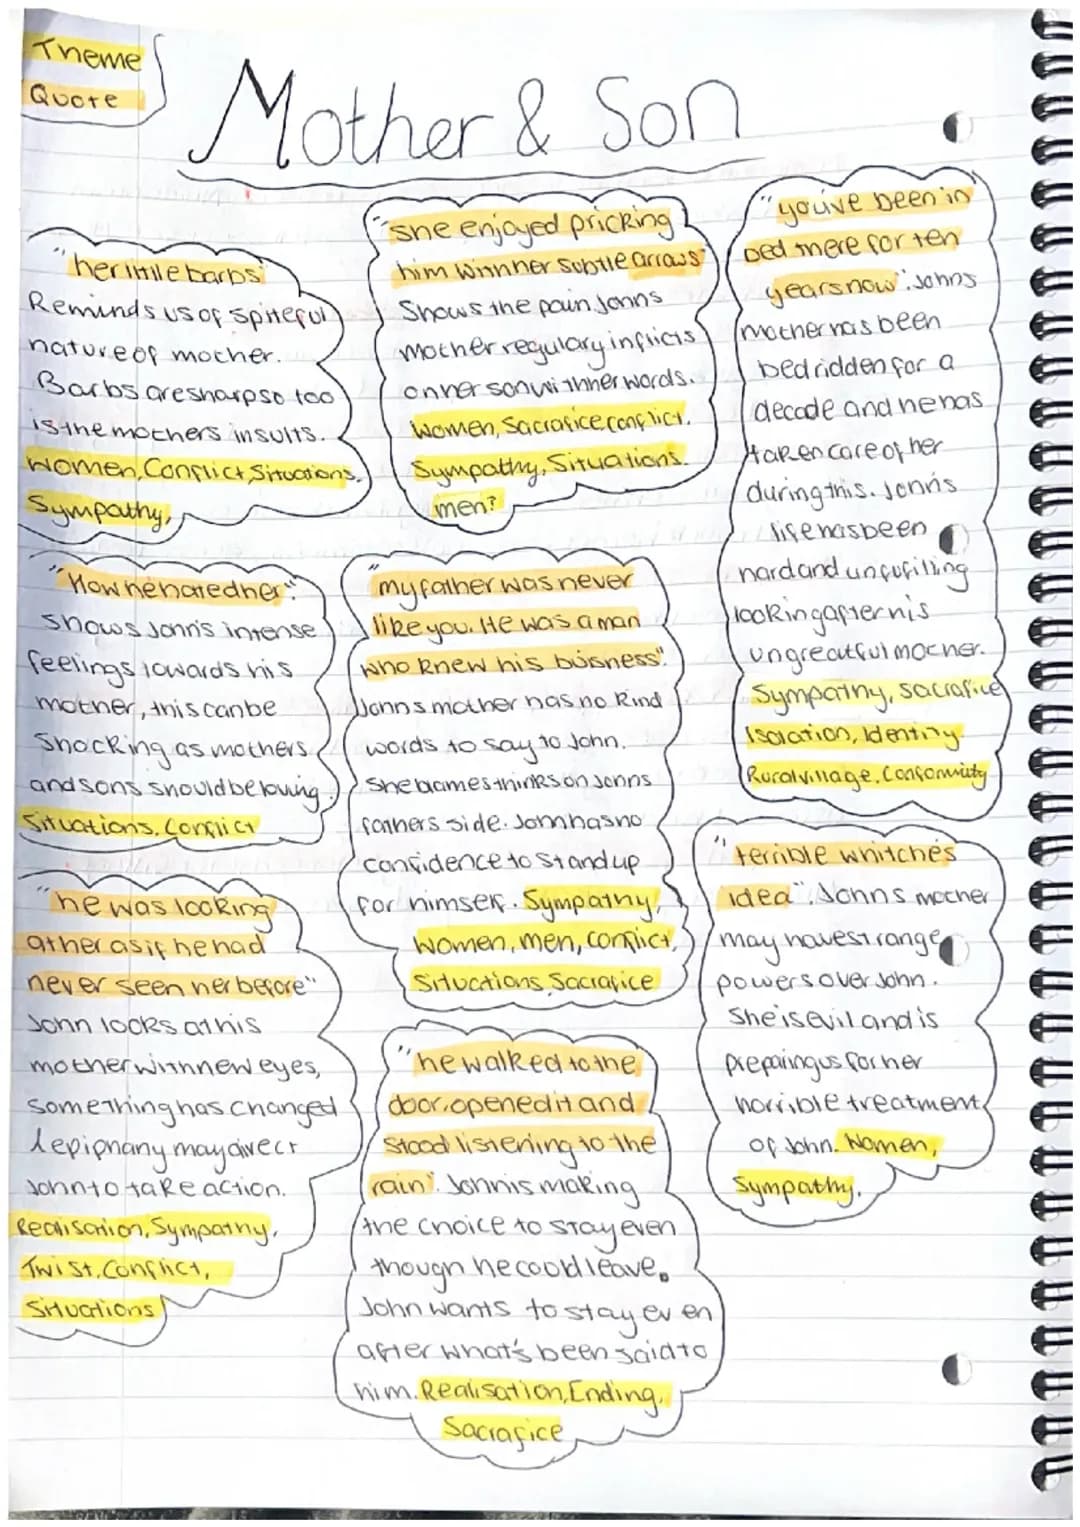 Theme
Quote
Mother & Son
"her little barbs"
Reminds us of spiteful
nature of mother.
Barbs are sharp so too
is the mothers insults.
Women, Conflict, Situations,
Sympathy,
"she enjoyed pricking
him with her subtle arraws"
Shows the pain Johns
mother regulary inflicts
on her son with her words.
Women, Sacrafice conflict,
Sympathy, Situations.
men?
"you've been in
bed there for ten
years now". Johns
mother has been
bedridden for a
decade and he has
taken care of her
during this. John's
life has been
hard and unfufilling
looking after his
ungreatful mother.
Sympathy, sacrafice
Isolation, Identity
Rural village, Conformity
"How he hated her".
Shows John's intense
feelings towards his
mother, this can be
Shocking as mothers
and sons should be loving.
Situations, Conflict
"my father was never
like you. He was a man
who knew his buisness".
Johns mother has no kind
words to say to John.
She blames thinks on Johns
fathers side. John has no
confidence to stand up
for himself. Sympathy,
Women, men, conflict,
Situations, Sacrafice
"terrible whitche's
idea". Johns mother
may have strange
powers over John.
She is evil and is
preparing us for her
horrible treatment
of John. Women,
Sympathy.
"he was looking
at her as if he had
never seen her before"
John looks at his
mother with new eyes,
Something has changed
& epiphany may divect
John to take action.
Realisation, Sympathy,
Twist, Conflict,
Situations
"he walked to the
door, opened it and
stood listening to the
rain". John is making
the choice to stay even
though he could leave.
John wants to stay even
after what's been said to
him. Realisation, Ending,
Sacrafice